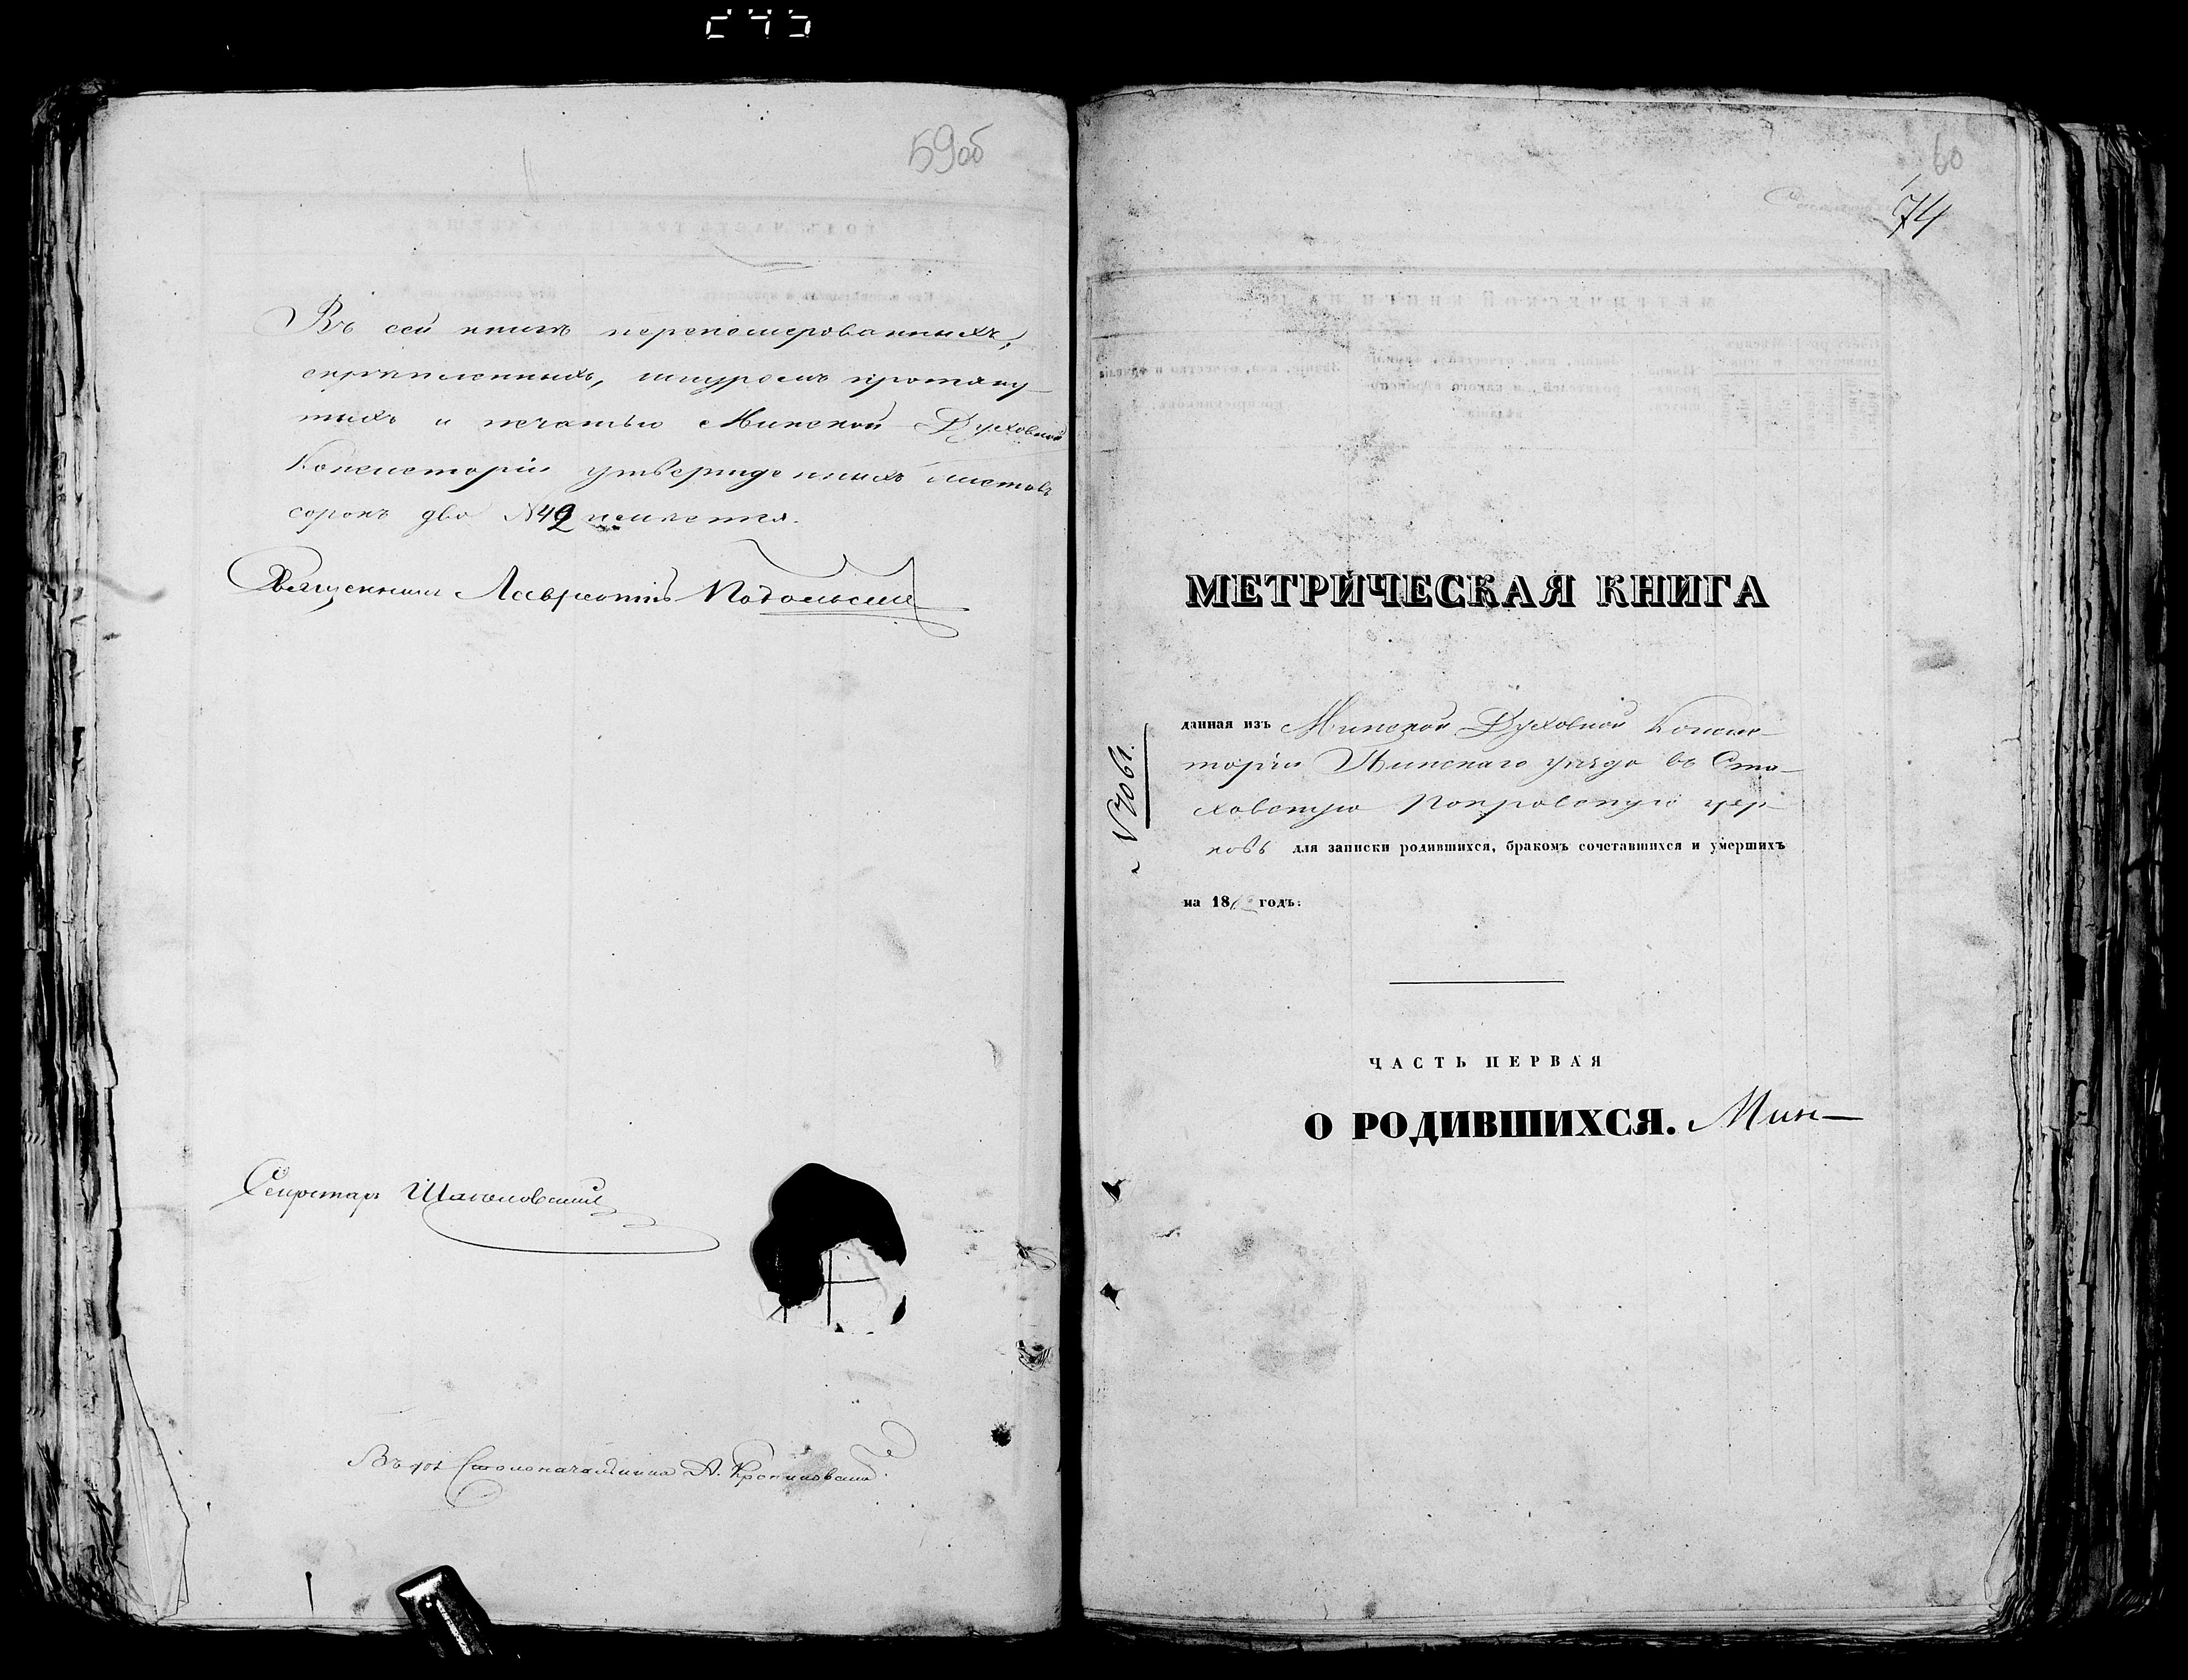 59об
Въ сей книгѣ переномерованныхъ,
скрѣпленныхъ, шнуромъ протяну-
тыхъ и печатью Минской Духовной
Консисторіи утвержденныхъ листовъ
сорокъ два №42 имѣется.
Священникъ Лаврентій Подольскій
Секретарь
Столоначальника А.
60
74
МЕТРИЧЕСКАЯ КНИГА
данная изъ Минской Духовной Консис-
торіи Пинскаго уѣзда въ Ста-
ховскую Покровскую цер-
ковь для записки родившихся, бракомъ сочетавшихся и умершихъ
на 18 годъ:
№7061.
ЧАСТЬ ПЕРВАЯ
О РОДИВШИХСЯ. Мин-